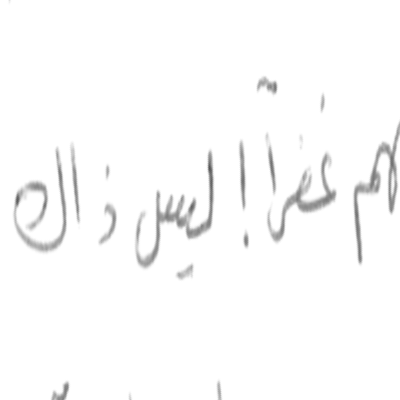 لهم غفراً! ليس ذاك